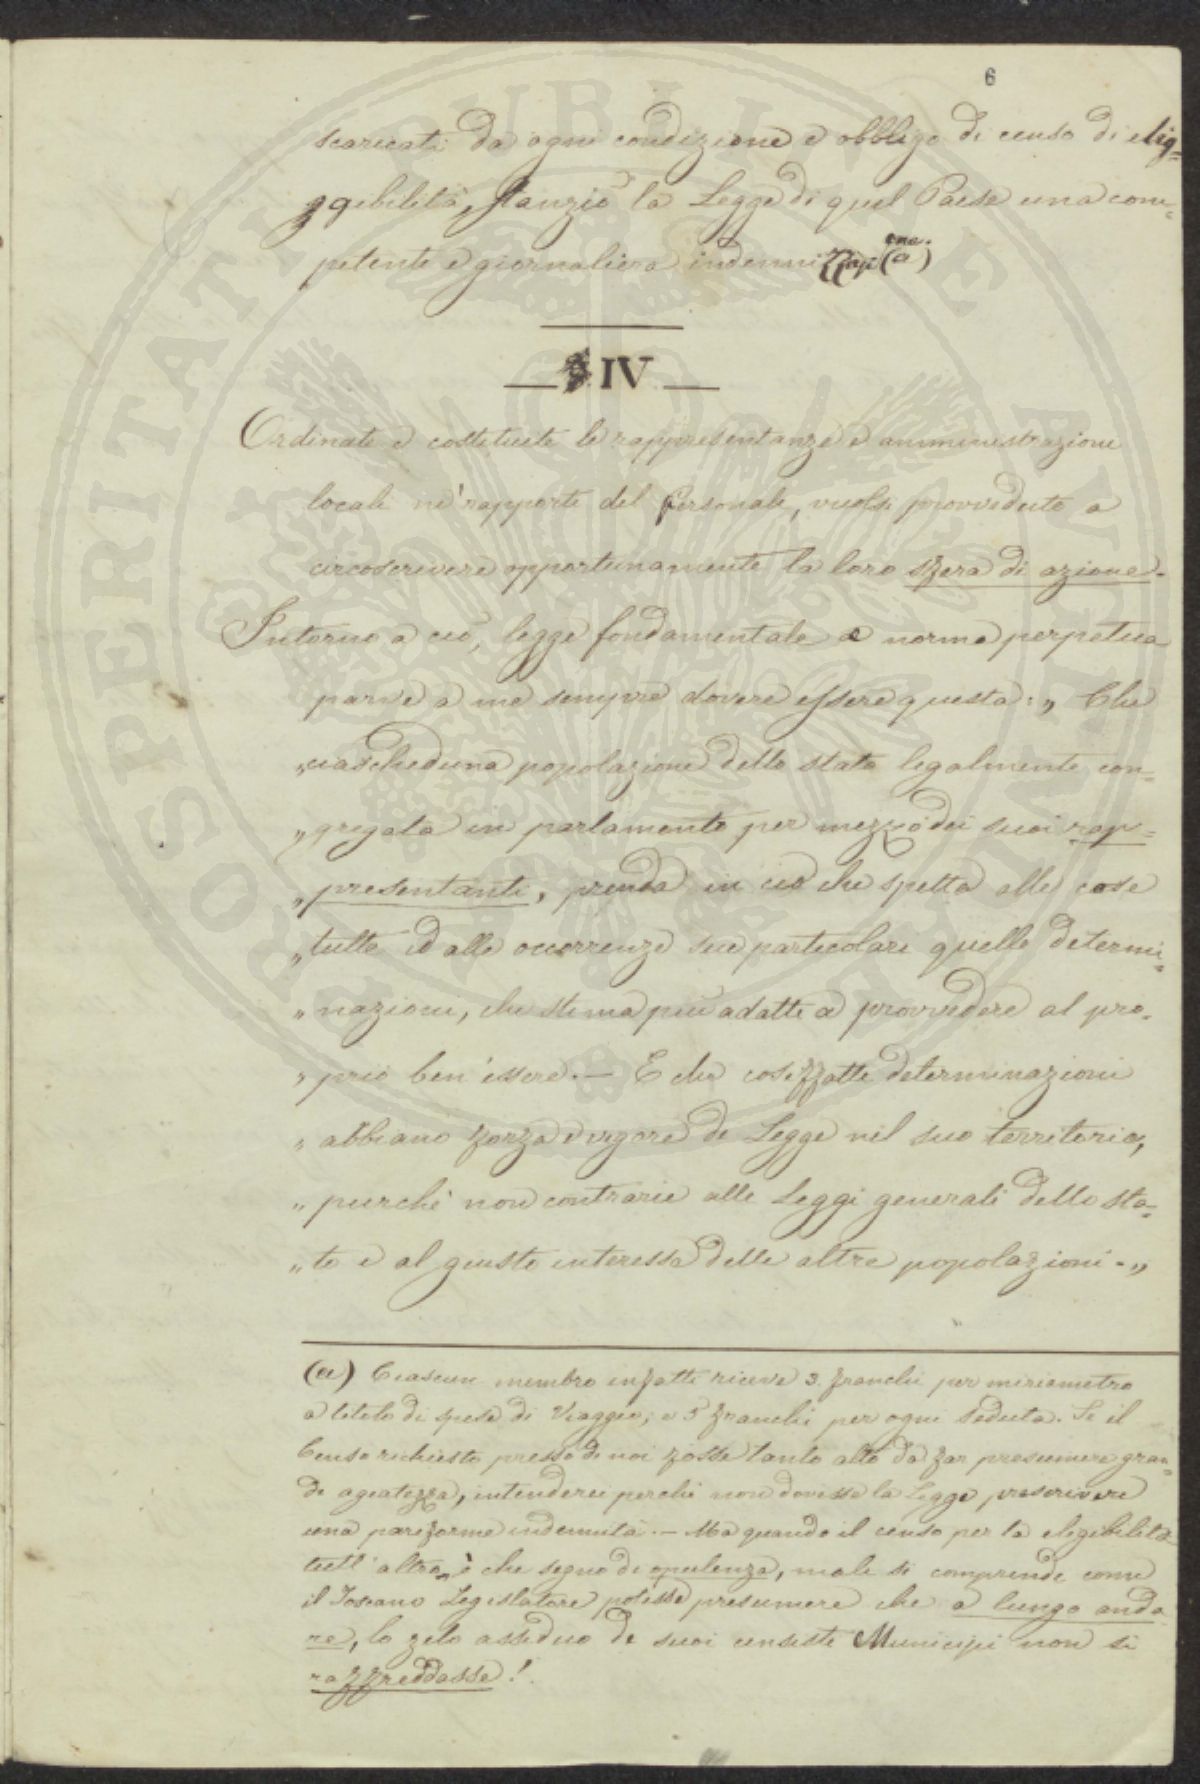 6
scaricati da ogni condizione e obbligo di censo di elig=
ggibilità, stanziò la Legge di quel Paese una com=
petente e giornaliera indennizzazione. (a)
§ IV
Ordinate e costituite le rappresentanze e amministrazione
locali ne' rapporti del Personale, vuolsi provveduto a
circoscrivere opportunamente la loro sfera di azione.
Intorno a ciò, legge fondamentale e norma perpetua
parve a me sempre dovere essere questa: „ Che
„ciascheduna popolazione dello stato legalmente con=
„gregata in parlamento per mezzo dei suoi rap=
„presentanti, prenda in ciò che spetta alle cose
„tutte ed alle occorrenze sue particolari quelle determi=
„nazioni, che stima più adatte a provvedere al pro.
„prio ben' essere. — E che cosiffatte determinazioni
„abbiano forza e vigore di Legge nel suo territorio,
„purchè non contrarie alle Leggi generali dello sta=
„to e al giusto interesse delle altre popolazioni. „
(a) Ciascun membro infatti riceve 3. franchi per miriametro
a titolo di spese di Viaggio; e 5 franchi per ogni Seduta. Se il
Censo richiesto presso di noi fosse tanto alto da far presumere gran=
de agiatezza, intenderei perchè non dovesse la Legge prescrivere
una pariforme indennità. — Ma quando il censo per la elegibilità
tutt' altro è che segno di opulenza, male si comprende come
il Toscano Legislatore potesse presumere che a lungo anda
re, lo zelo assiduo de suoi censiste Municipi non si
raffreddasse!